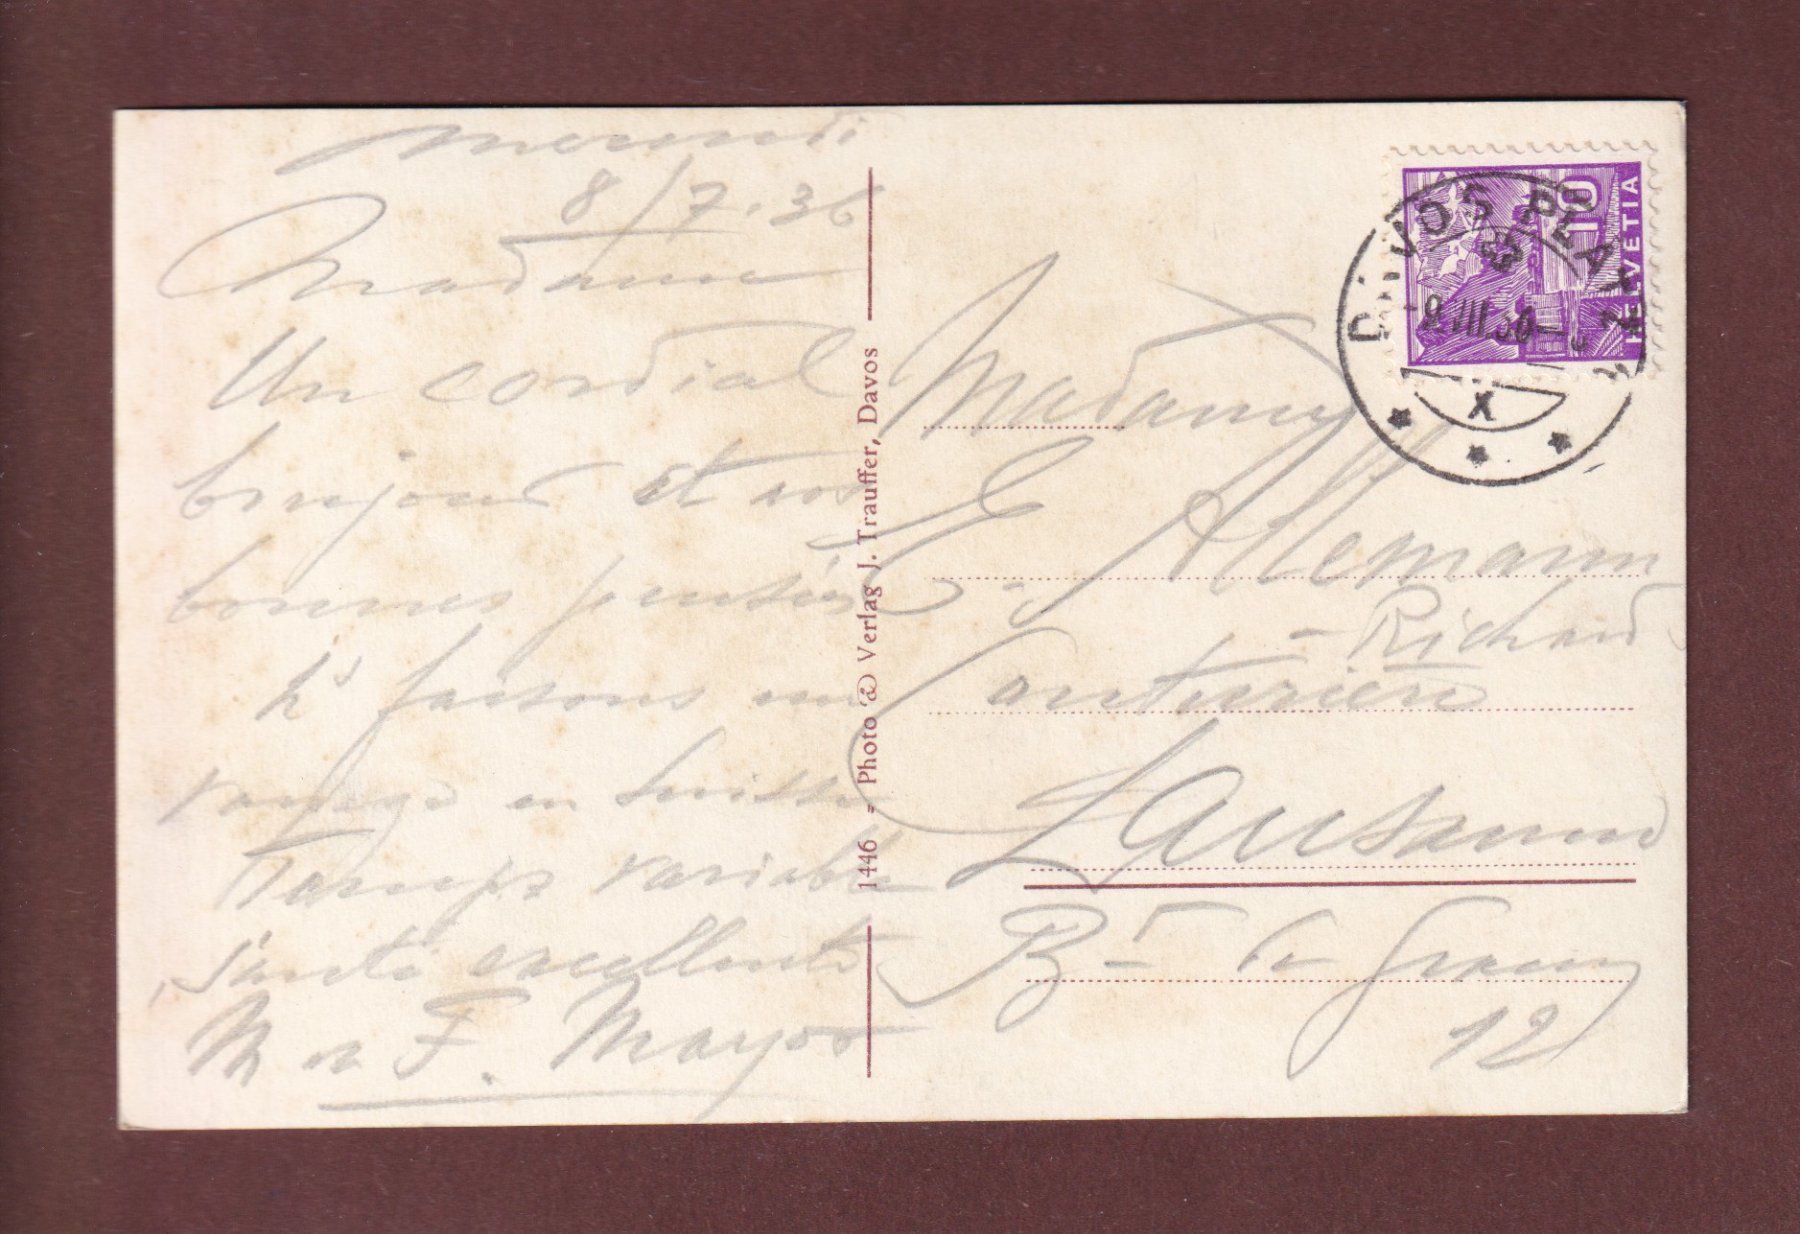 mercredi
8/7.36
Madame
Un cordial
bonjour et nos
bonnes pensées
Ns faisons un
voyage en Suisse
Temps variable
Santé excellente
M et F. Mayor
1446 - Photo & Verlag J. Trauffer, Davos
Madame
E. Allemann
- Richard
Couturière
Lausanne
Bd de Grancy
12
DAVOS PLATZ
VIII.36
X
10
HELVETIA